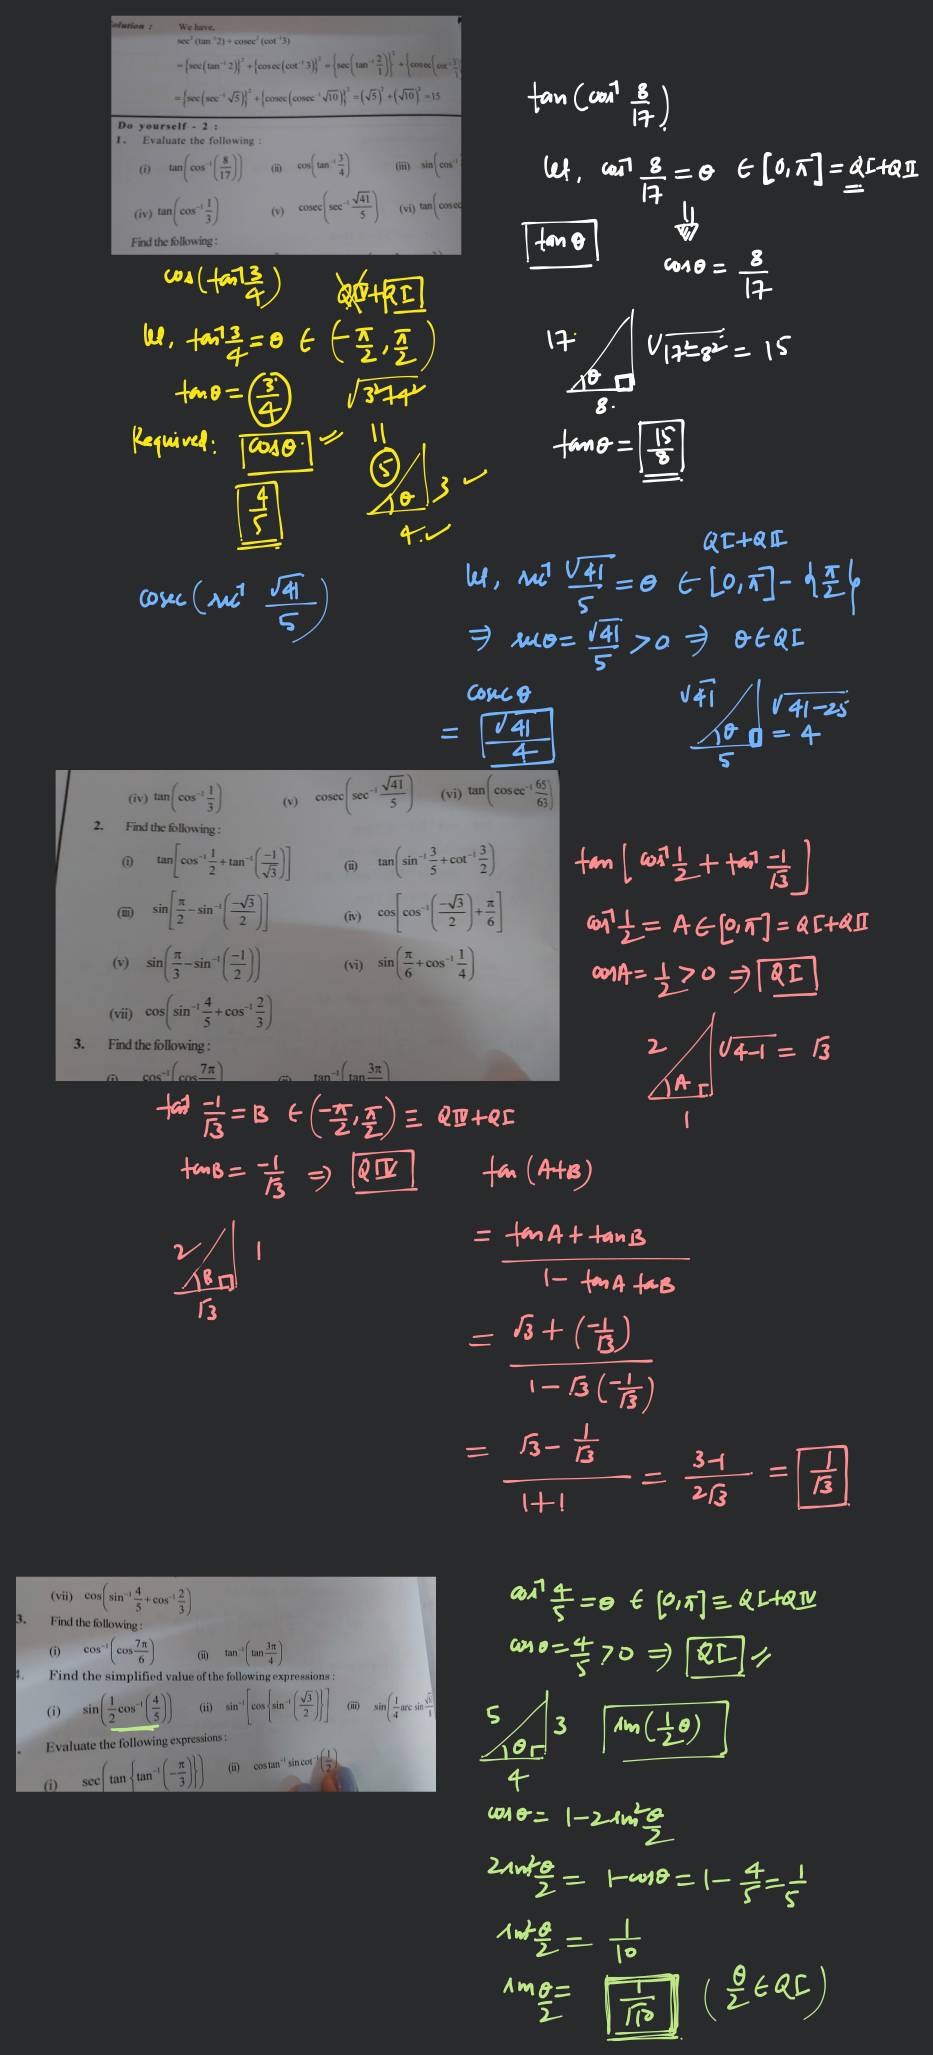 Solution : We have,
sec² (tan⁻¹2) + cosec² (cot⁻¹3)
= {sec(tan⁻¹ 2)}² + {cosec(cot⁻¹ 3)}² = {sec(tan⁻¹ 2/1)}² + {cosec(cot⁻¹ 3/1
= {sec(sec⁻¹ √5)}² + {cosec(cosec⁻¹ √10)}² = (√5)² + (√10)² = 15
Do yourself - 2 :
1. Evaluate the following :
(i) tan(cos⁻¹(8/17)) (ii) cos(tan⁻¹ 3/4) (iii) sin(cos⁻¹
(iv) tan(cos⁻¹ 1/3) (v) cosec(sec⁻¹ √41/5) (vi) tan(cosec
Find the following :
tan(cos⁻¹ 8/17)
let, cos⁻¹ 8/17 = θ ∈ [0,π] = QI+QII
⇓
tan θ
cosθ = 8/17
17 θ 8 √17²-8² = 15
tanθ = 15/8
cos(tan⁻¹ 3/4)
QIV+QI
let, tan⁻¹ 3/4 = θ ∈ (-π/2, π/2)
tanθ = 3/4 √3²+4²
Required: cosθ = 5 θ 3 4
4/5
cosec(sec⁻¹ √41/5)
QI+QII
let, sec⁻¹ √41/5 = θ ∈ [0,π] - {π/2}
⇒ secθ = √41/5 > 0 ⇒ θ∈QI
cosec θ
= √41/4
√41 θ 5 √41-25 = 4
(iv) tan(cos⁻¹ 1/3) (v) cosec(sec⁻¹ √41/5) (vi) tan(cosec⁻¹ 65/63)
2. Find the following :
(i) tan[cos⁻¹ 1/2 + tan⁻¹(-1/√3)] (ii) tan(sin⁻¹ 3/5 + cot⁻¹ 3/2)
(iii) sin[π/2 - sin⁻¹(-√3/2)] (iv) cos[cos⁻¹(-√3/2) + π/6]
(v) sin(π/3 - sin⁻¹(-1/2)) (vi) sin(π/6 + cos⁻¹ 1/4)
(vii) cos(sin⁻¹ 4/5 + cos⁻¹ 2/3)
3. Find the following :
(i) cos⁻¹(cos 7π (ii) tan⁻¹(tan 3π
tan[cos⁻¹ 1/2 + tan⁻¹ -1/√3]
cos⁻¹ 1/2 = A ∈ [0,π] = QI+QII
cosA = 1/2 > 0 ⇒ QI
2 A 1 √4-1 = √3
tan⁻¹ -1/√3 = B ∈ (-π/2, π/2) ≡ QIV+QI
tanB = -1/√3 ⇒ QIV
2 B 1 √3
tan (A+B)
= tanA + tanB / 1 - tanA tanB
= √3 + (-1/√3) / 1 - √3(-1/√3)
= √3 - 1/√3 / 1+1 = 3-1/2√3 = 1/√3
(vii) cos(sin⁻¹ 4/5 + cos⁻¹ 2/3)
3. Find the following :
(i) cos⁻¹(cos 7π/6) (ii) tan⁻¹(tan 3π/4)
4. Find the simplified value of the following expressions :
(i) sin(1/2 cos⁻¹(4/5)) (ii) sin⁻¹[cos{sin⁻¹(√3/2)}] (iii) sin(1/4 arc sin
Evaluate the following expressions :
(i) sec(tan{tan⁻¹(-π/3)}) (ii) cos tan⁻¹ sin cot⁻¹(1/2)
cos⁻¹ 4/5 = θ ∈ [0,π] ≡ QI+QIV
cosθ = 4/5 > 0 ⇒ QI
5 θ 3 4 sin(1/2 θ)
cosθ = 1-2sin² θ/2
2sin² θ/2 = 1-cosθ = 1 - 4/5 = 1/5
sin² θ/2 = 1/10
sin θ/2 = 1/√10 (θ/2 ∈ QI)